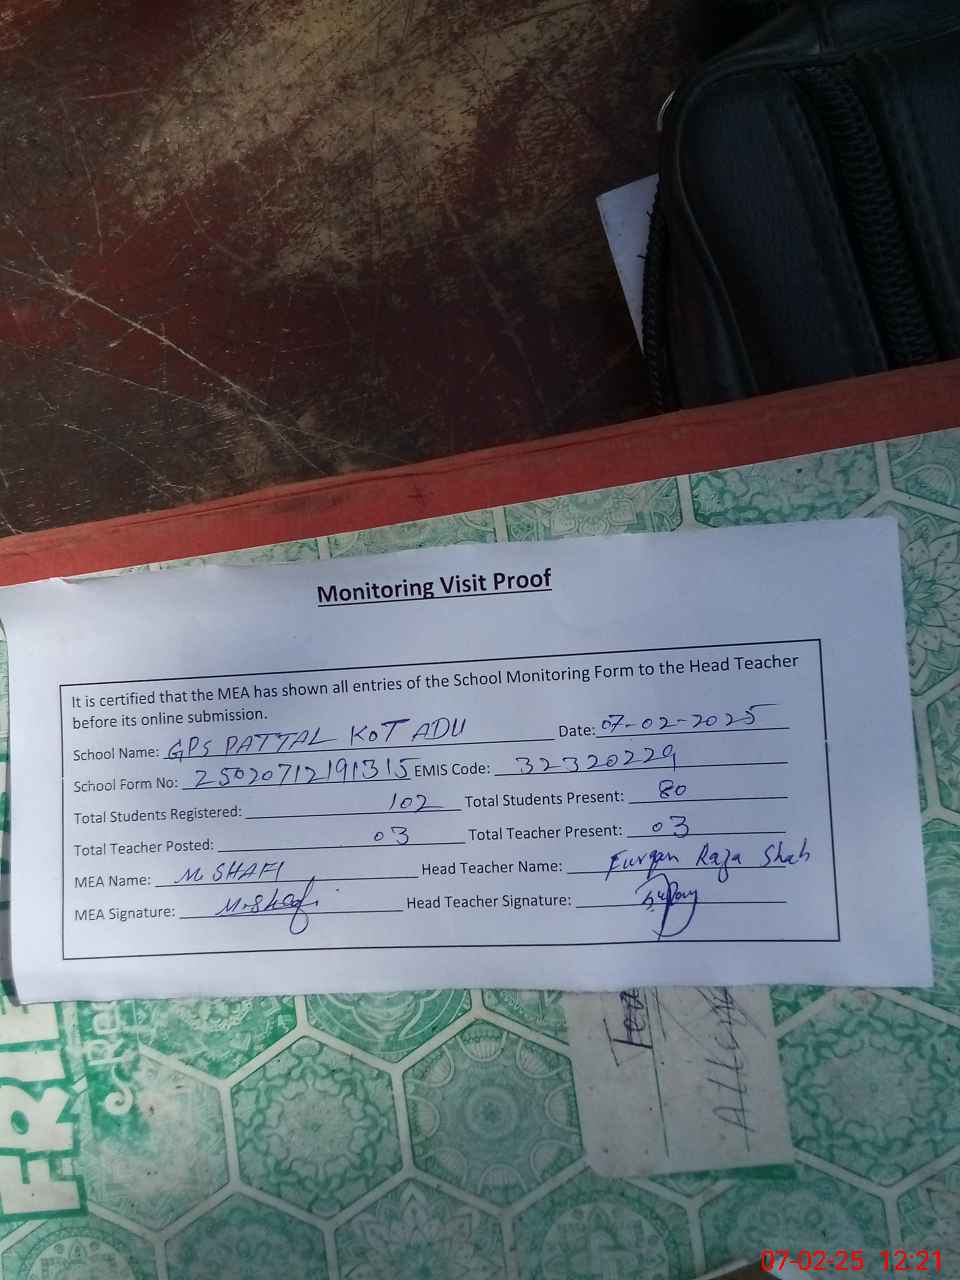 Monitoring Visit Proof
It is certified that the MEA has shown all entries of the School Monitoring Form to the Head Teacher
before its online submission.
School Name: GPS PATTAL KOT ADU Date: 07-02-2025
School Form No: 25020712191315 EMIS Code: 32320229
Total Students Registered: 102 Total Students Present: 80
Total Teacher Posted: 03 Total Teacher Present: 03
MEA Name: M SHAFI Head Teacher Name: Furqan Raza Shah
MEA Signature: M.Shafi Head Teacher Signature:
07-02-25 12:21